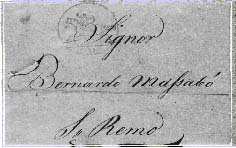 Signor
Bernardo Massabó
S. Remo